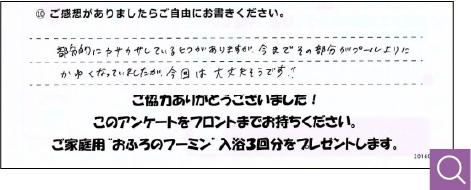 ⑩ ご感想がありましたらご自由にお書きください。
部分的にカサカサしているヒフがありますが、今までその部分がプールよりに
かゆくなっていましたが、今回は大丈夫そうです!!
ご協力ありがとうございました！
このアンケートをフロントまでお持ちください。
ご家庭用“おふろのフーミン”入浴3回分をプレゼントします。